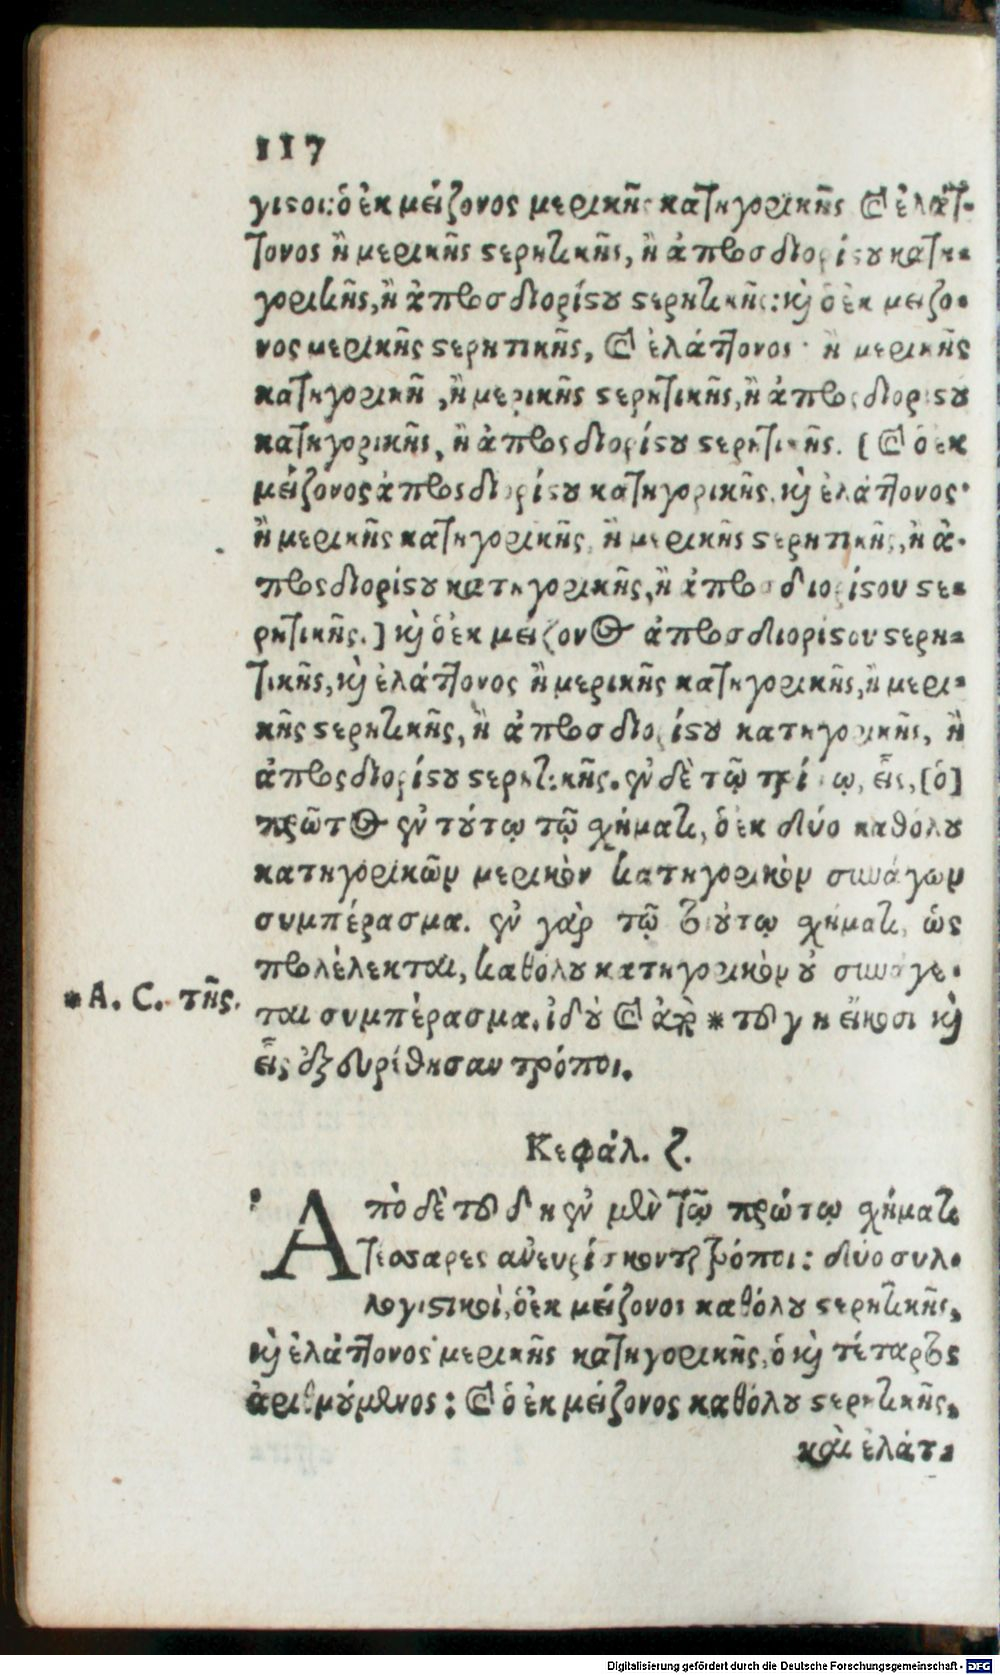 117
γιστοι: ὁ ἐκ μείζονος μερικῆς κατηγορικῆς καὶ ἐλάτ-
τονος ἢ μερικῆς στερητικῆς, ἢ ἀπροσδιορίστου κατη-
γορικῆς, ἢ ἀπροσδιορίστου στερητικῆς: καὶ ὁ ἐκ μείζο-
νος μερικῆς στερητικῆς, καὶ ἐλάττονος ἢ μερικῆς
κατηγορικῆ, ἢ μερικῆς στερητικῆς, ἢ ἀπροσδιορίστου
κατηγορικῆς, ἢ ἀπροσδιορίστου στερητικῆς. [καὶ ὁ ἐκ
μείζονος ἀπροσδιορίστου κατηγορικῆς, καὶ ἐλάττονος
ἢ μερικῆς κατηγορικῆς, ἢ μερικῆς στερητικῆς, ἢ ἀ-
προσδιορίστου κατηγορικῆς, ἢ ἀπροσδιορίστου στε-
ρητικῆς.] καὶ ὁ ἐκ μείζονος ἀπροσδιορίστου στερη-
τικῆς, καὶ ἐλάττονος ἢ μερικῆς κατηγορικῆς, ἢ μερι-
κῆς στερητικῆς, ἢ ἀπροσδιορίστου κατηγορικῆς, ἢ
ἀπροσδιορίστου στερητικῆς. ἐν δὲ τῷ τρίτῳ, εἷς, [ὁ]
πρῶτος ἐν τούτῳ τῷ σχήματι, ὁ ἐκ δύο καθόλου
κατηγορικῶν μερικὸν κατηγορικὸν συνάγων
συμπέρασμα. ἐν γὰρ τῷ τοιούτῳ σχήματι, ὡς
προλέλεκται, καθόλου κατηγορικὸν οὐ συνάγε-
ται συμπέρασμα. ἰδοὺ καὶ παρὰ * τοῦ γ η εἴκοσι καὶ
* A. C. τῆς.
εἷς ἐξευρίθησαν τρόποι.
Κεφάλ. ζ.
Ἀπὸ δὲ τοῦ δ η ἐν μὲν τῷ πρώτῳ σχήματι
τέσσαρες ἀνευρίσκονται τρόποι: δύο συλ-
λογιστικοὶ, ὁ ἐκ μείζονος καθόλου στερητικῆς,
καὶ ἐλάττονος μερικῆς κατηγορικῆς, ὁ καὶ τέταρτος
ἀριθμούμενος: καὶ ὁ ἐκ μείζονος καθόλου στερητικῆς,
καὶ ἐλάτ-